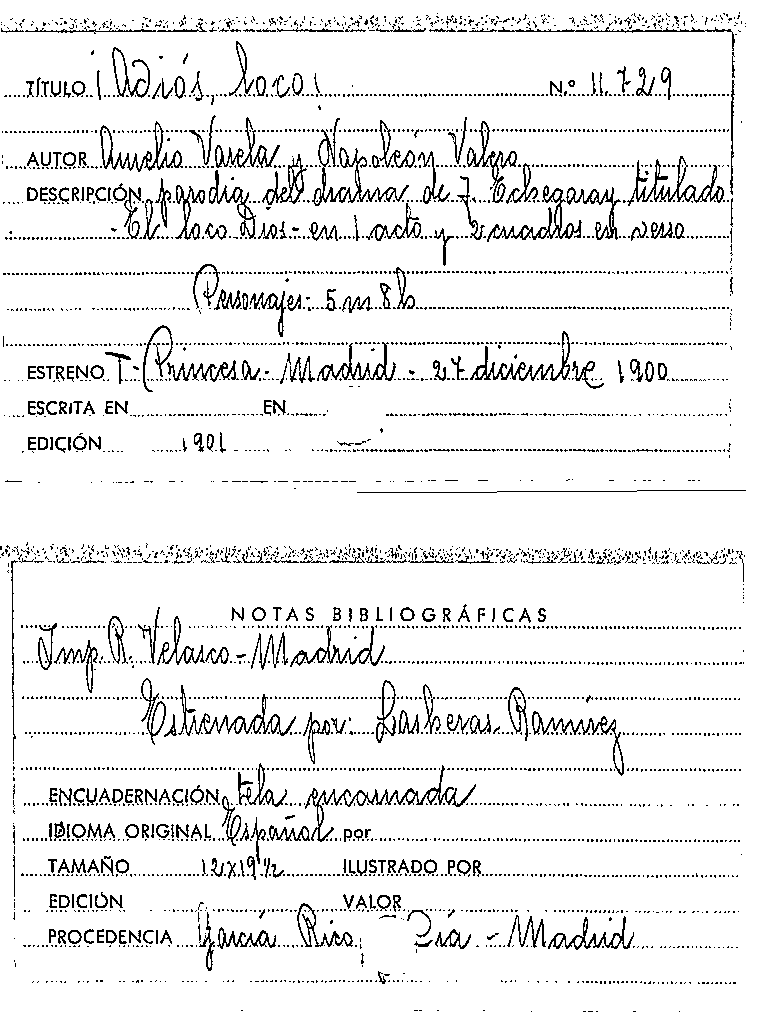 TÍTULO ¡Adiós, loco! N.º 11.729
AUTOR Aurelio Varela y Napoleón Valero
DESCRIPCIÓN parodia del drama de J. Echegaray titulado
-El loco Dios- en 1 acto y 2 cuadros en verso
Personajes: 5 m 8 h
ESTRENO T-Princesa- Madrid - 27 diciembre 1900
ESCRITA EN EN
EDICIÓN 1901
NOTAS BIBLIOGRÁFICAS
Imp. R. Velasco-Madrid
Estrenada por: Lasheras-Ramírez
ENCUADERNACIÓN tela encarnada
IDIOMA ORIGINAL Español por
TAMAÑO 12x19½ ILUSTRADO POR
EDICIÓN VALOR
PROCEDENCIA García Rico, Cía - Madrid